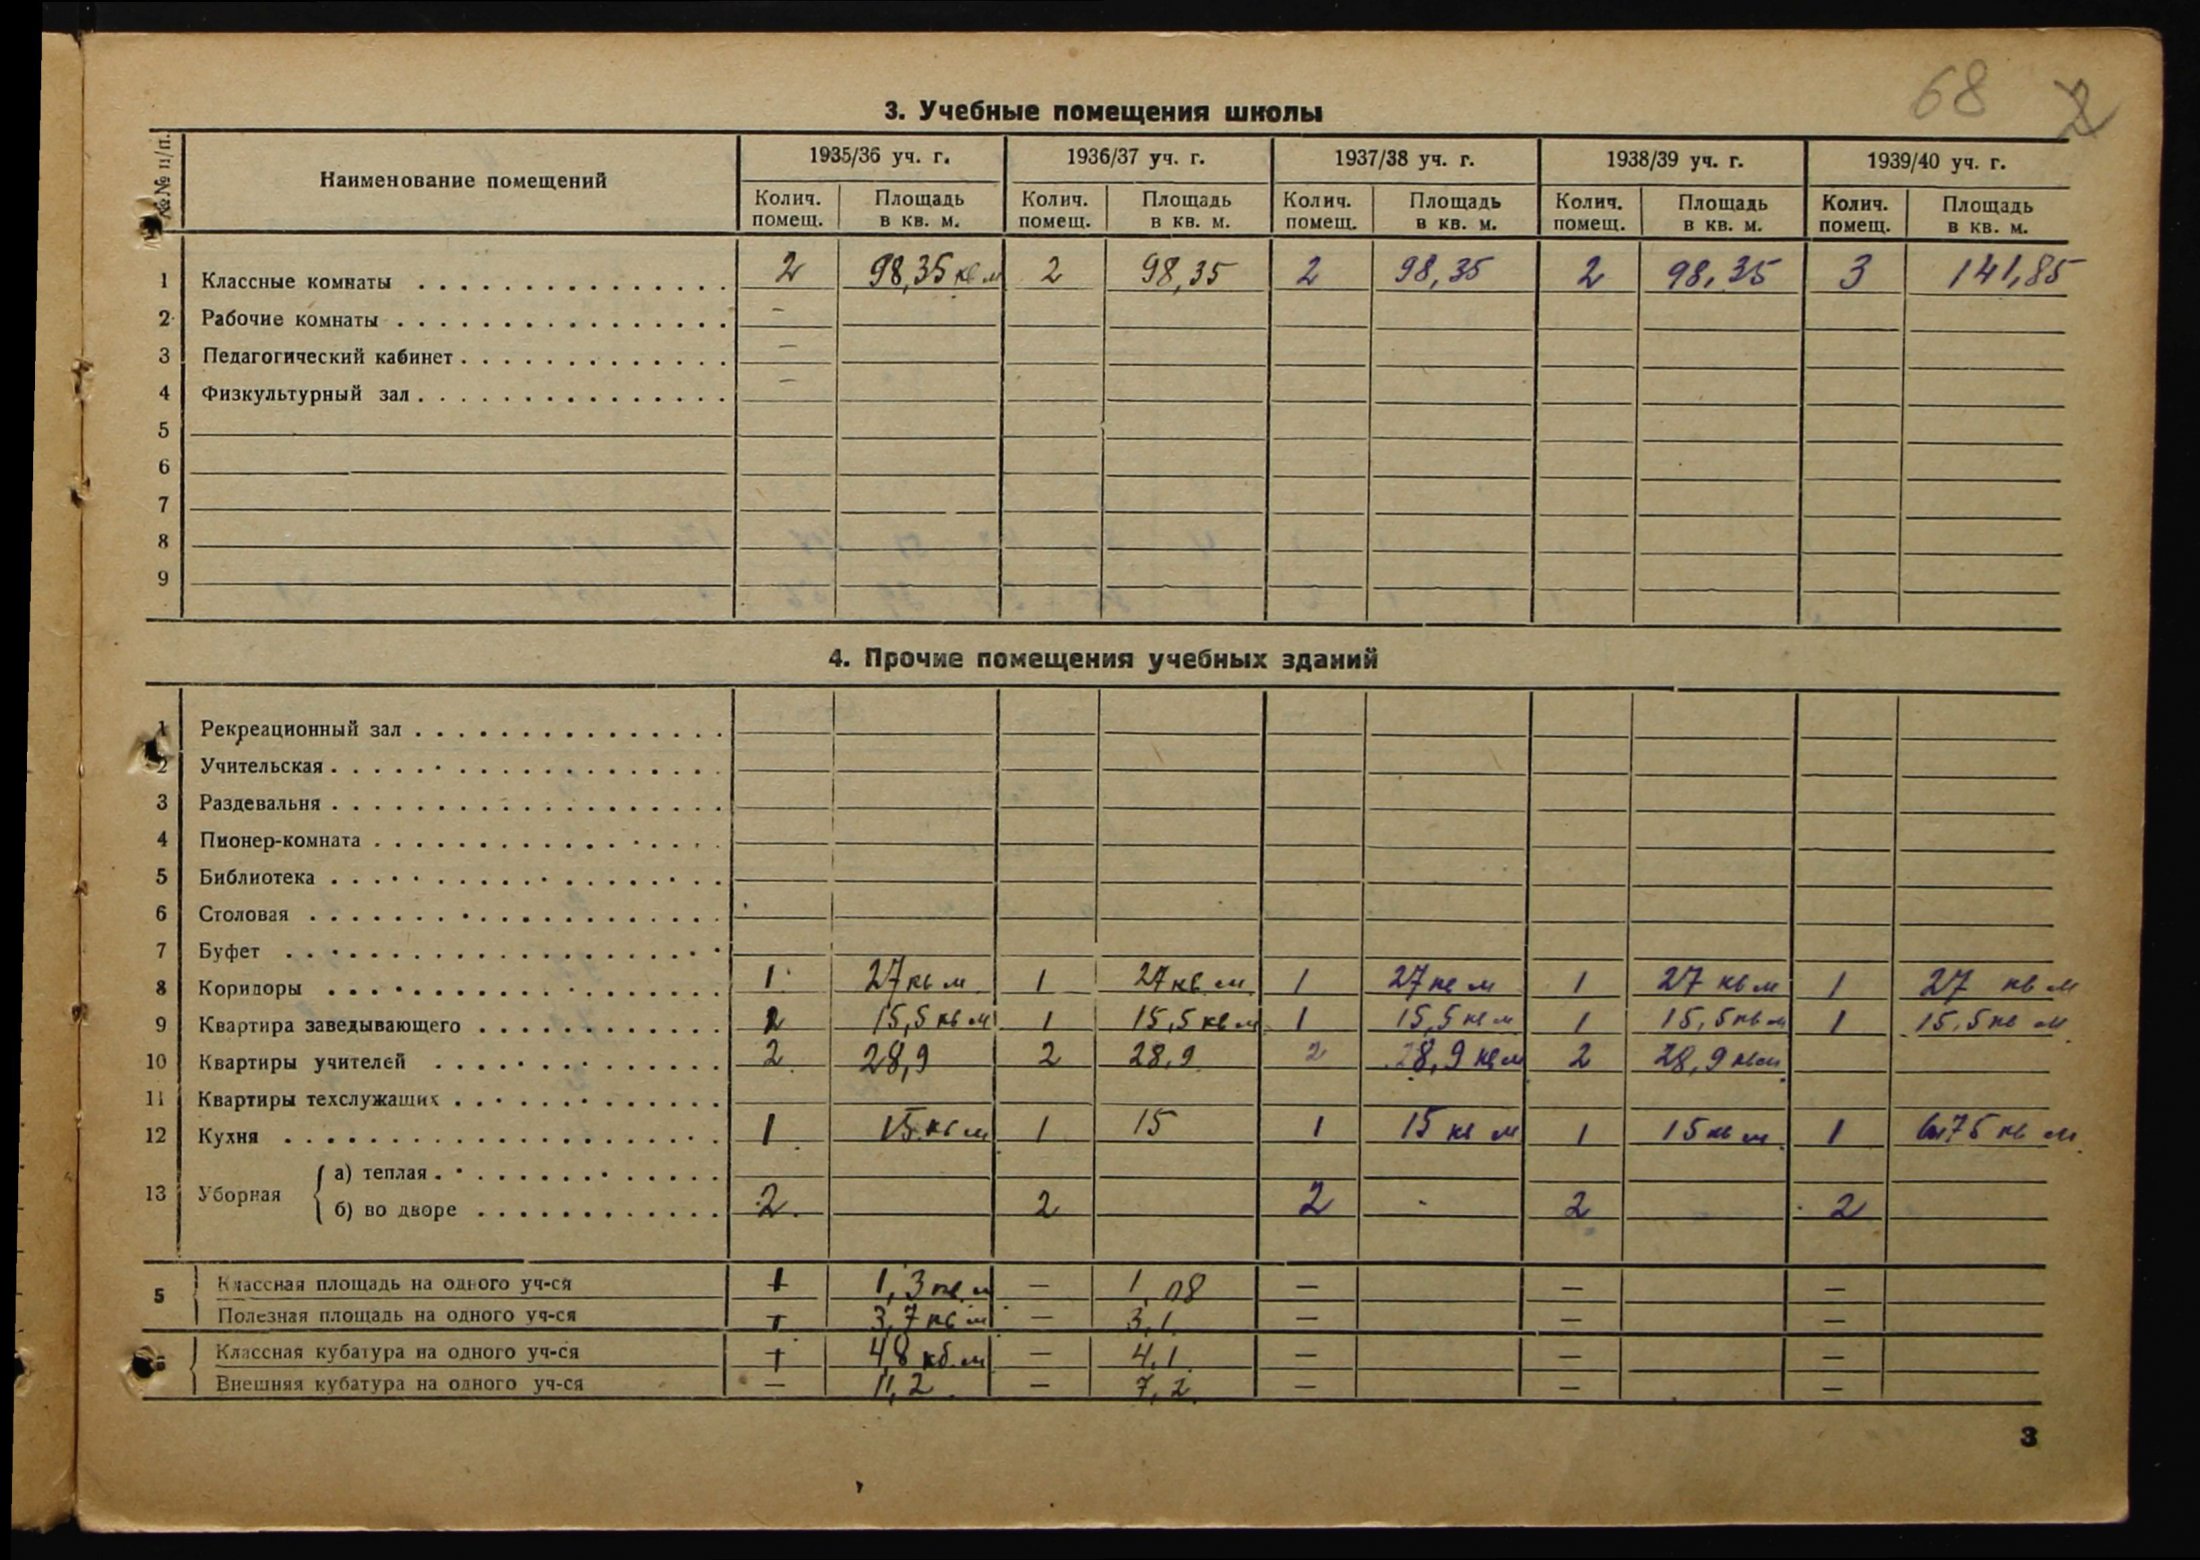 68 2
3. Учебные помещения школы
№№ п/п. Наименование помещений 1935/36 уч. г. 1936/37 уч. г. 1937/38 уч. г. 1938/39 уч. г. 1939/40 уч. г.
Колич. помещ. Площадь в кв. м. Колич. помещ. Площадь в кв. м. Колич. помещ. Площадь в кв. м. Колич. помещ. Площадь в кв. м. Колич. помещ. Площадь в кв. м.
1 Классные комнаты 2 98,35 кв м 2 98,35 2 98,35 2 98,35 3 141,85
2 Рабочие комнаты –
3 Педагогический кабинет –
4 Физкультурный зал –
5
6
7
8
9
4. Прочие помещения учебных зданий
1 Рекреационный зал
2 Учительская
3 Раздевальня
4 Пионер-комната
5 Библиотека
6 Столовая
7 Буфет
8 Коридоры 1 27 кв м 1 27 кв м 1 27 кв м 1 27 кв м 1 27 кв м
9 Квартира заведывающего 15,5 кв м 1 15,5 кв м 1 15,5 кв м 1 15,5 кв м 1 15,5 кв м
10 Квартиры учителей 2 28,9 2 28,9 2 28,9 кв м 2 28,9 кв м
11 Квартиры техслужащих
12 Кухня 1 15 кв м 1 15 1 15 кв м 1 15 кв м 1 кв м
13 Уборная а) теплая
б) во дворе 2 2 2 2 2
5 Классная площадь на одного уч-ся + 1,3 кв. м — 1,08 — — —
Полезная площадь на одного уч-ся + 3,7 кв м — 3,1 — — —
6 Классная кубатура на одного уч-ся + 48 кб. м — 4,1 — — —
Внешняя кубатура на одного уч-ся — 11,2 — 7,2 — — —
3